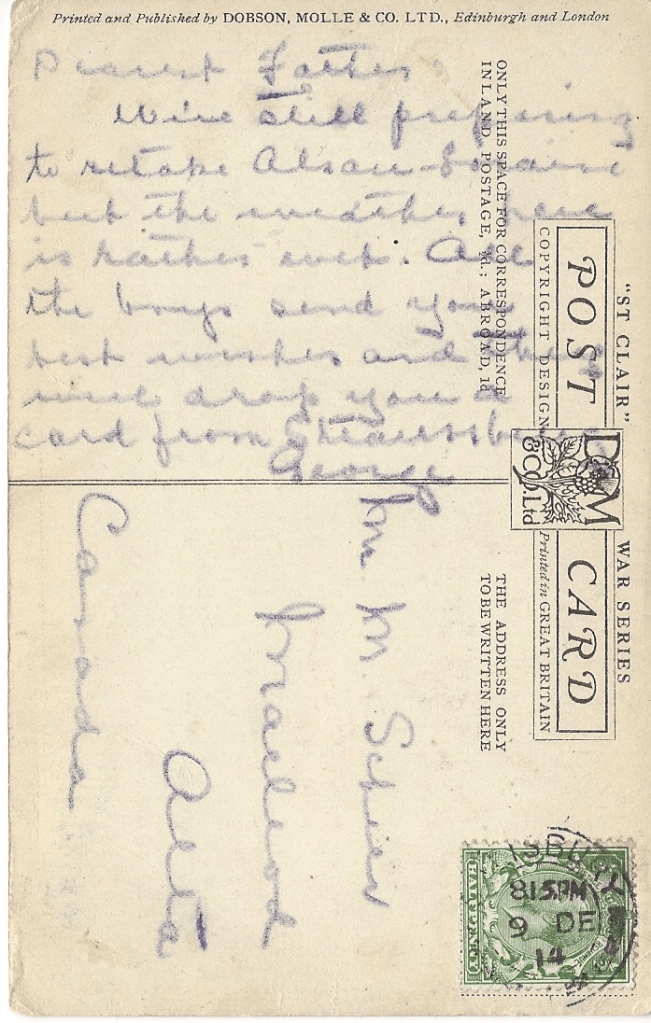 Printed and Published by DOBSON, MOLLE & CO. LTD., Edinburgh and London
Dearest Father
We're still preparing
to retake Alsace Loraine
but the weather here
is rather wet. All
the boys send you
best wishes and they
will drop you a
card from Straussburg
George
ONLY THIS SPACE FOR CORRESPONDENCE
INLAND POSTAGE, ½d.; ABROAD, 1d
"ST CLAIR" WAR SERIES
POST CARD
COPYRIGHT DESIGN
Printed in GREAT BRITAIN
D M
& Co. Ltd
THE ADDRESS ONLY
TO BE WRITTEN HERE
Mr. M. Scheer
Macleod
Alta
Canada
ISBURY
8 15 PM
9 DE
14
HALFPENNY